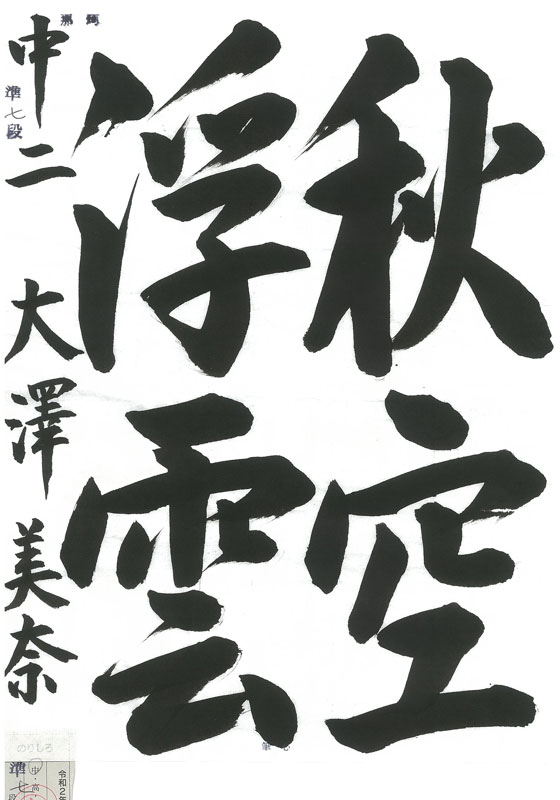 秋空
浮雲
中二 大澤美奈
準七段
のりしろ
中・高
準七段
令和2年